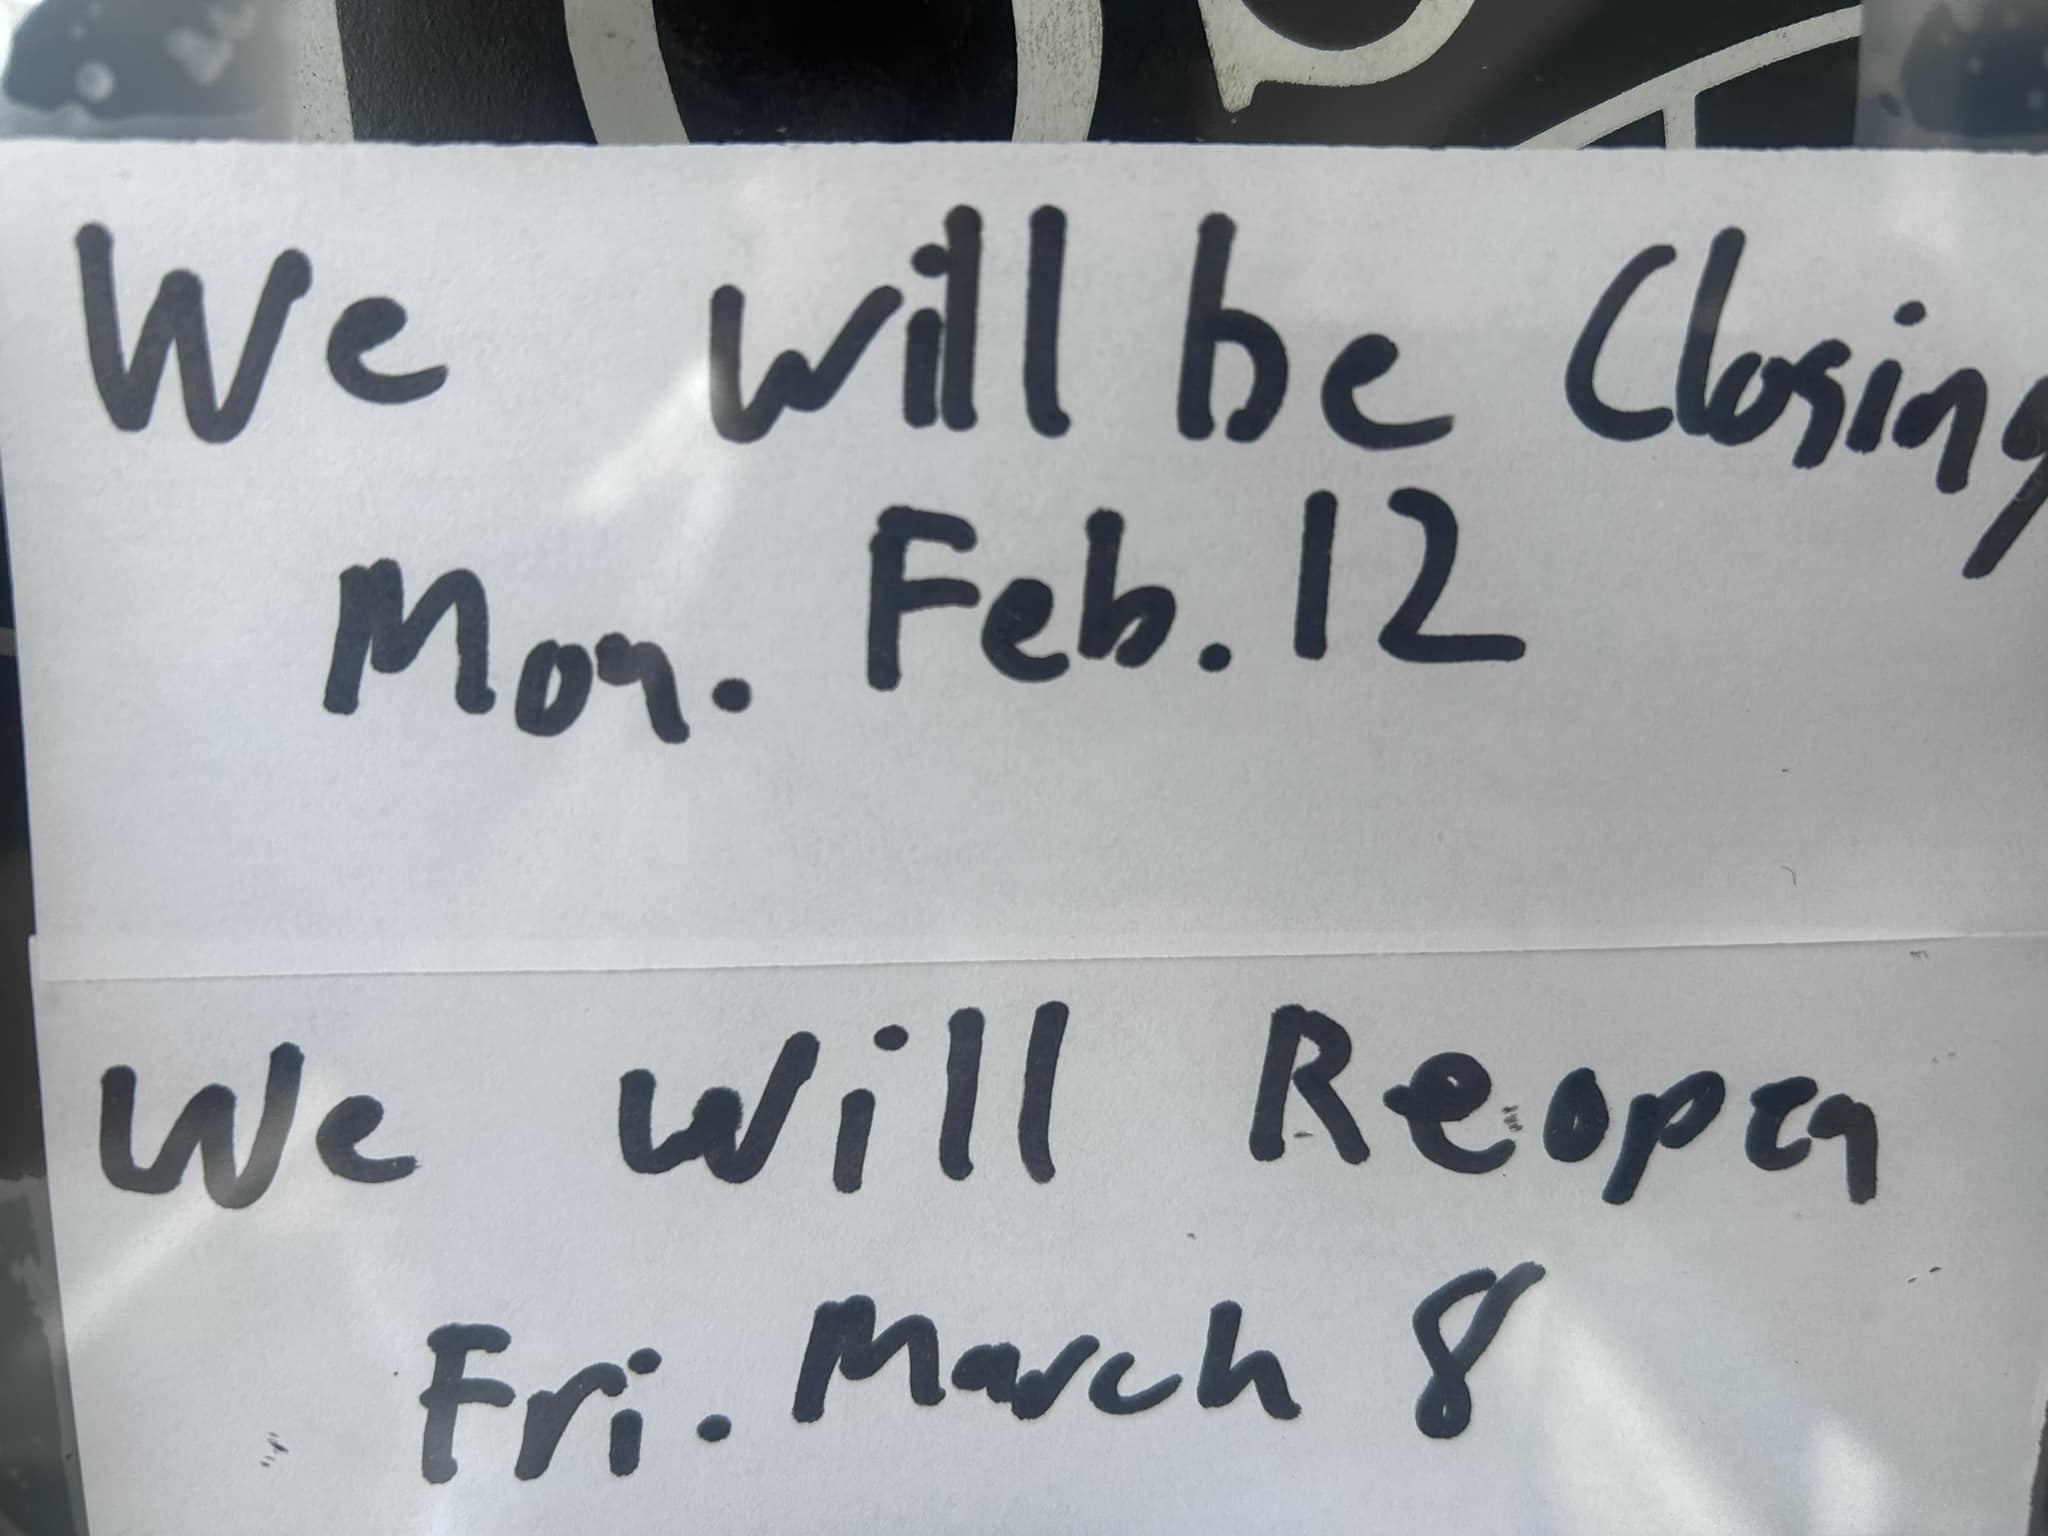 We will be Closing
Mon. Feb. 12
We Will Reopen
Fri. March 8